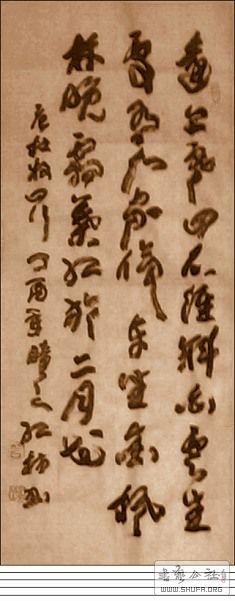 遠上寒山石徑斜白雲生
處有人家停車坐愛楓
林晚霜葉紅於二月花
唐杜牧山行丁酉
WWW.SHUFA.ORG